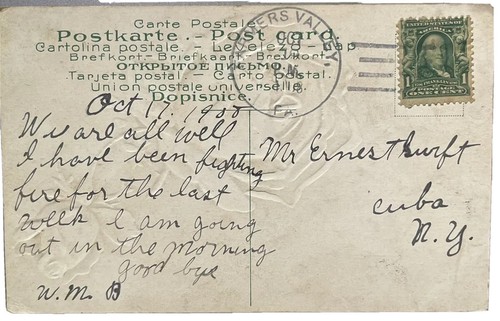 Carte Postale
Postkarte. - Post card.
Cartolina postale. - Levelező-Lap
Brefkort-Briefkaart-Brevkort
ОТКРЫТОЕ ПИСЬМО.
Tarjeta postal. - Carta postal.
Union postale universelle.
Dopisnice.
VALLEY,
PA.
UNITED STATES OF AMERICA
1
FRANKLIN
POSTAGE
ONE CENT
Oct 17, 1908
We are all well
I have been fighting
fire for the last
week I am going
out in the morning
good bye
W. M. B
Mr Ernest Swift
Cuba
N. Y.